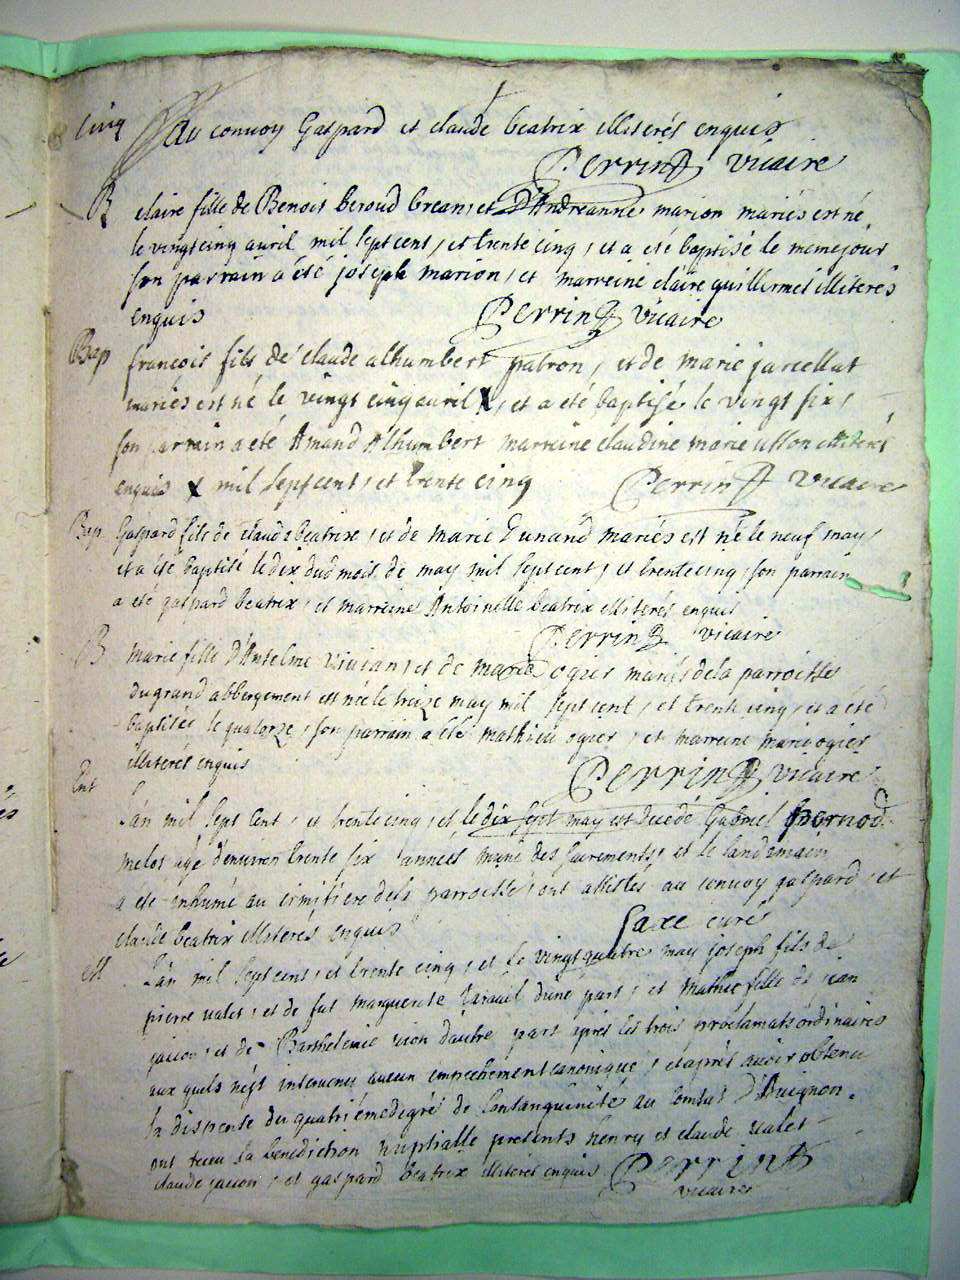 cinq
au convoy Gaspard et claude beatrix illiterés enquis
Perrin vicaire
B claire fille de Benoit beroud brean, et D'Andreanne marion mariés est né
le vingt cinq auril mil sept cent, et trente cinq, et a eté baptisé le meme jour
son parrain a été joseph marion, et marreine claire guillermet illiterés
enquis Perrin vicaire
Bap francois fils de claude alhumbert patron, et de marie jarcellat
mariés est né le vingt cinq auril X, et a été baptisé le vingt six,
son parrain a eté Amand Alhumbert marreine claudine marie usson illiterés
enquis X mil sept cent, et trente cinq Perrin vicaire
Bap Gaspard fils de claude beatrixe, et de marie Dunand mariés est né le neuf may,
et a été baptisé le dix dud mois de may mil sept cent, et trente cinq, son parrain
a été gaspard beatrix, et marreine Antoinette beatrix illiterés enquis
Perrin vicaire
B marie fille D'Antelme viuian, et de marie ogier mariés de la parroisse
du grand abbergement est née le treize may mil sept cent, et trente cinq, et a eté
baptisée le quatorze, son parrain a eté mathieu ogier, et marreine marie ogier
illiterés enquis Perrin vicaire
Ent L'an mil sept cent, et trente cinq, et le dix sept may est decedé Gabriel Bornod
melos agé d'enuiron trente six années muni des sacrements, et le landemain
a été inhumé au cimitiere de la parroisse, ont assistés au convoy gaspard, et
claude beatrix illiterés enquis Saxe curé
L'an mil sept cent, et trente cinq, et le vingt quatre may joseph fils de
pierre valet, et de fut marguerite d'une part, et mathie fille de jean
jacon, et de Barthelemie vion d'autre part apres les trois proclamats ordinaires
aux quels n'est interuenu aucun empechement canonique, et aprés auoir obtenu
la dispense du quatriéme degré de consanguinité au comtat d'Auignon
ont receu la benediction nuptialle presents henry et claude valet
claude jacon, et gaspard beatrix illiterés enquis Perrin
vicaire